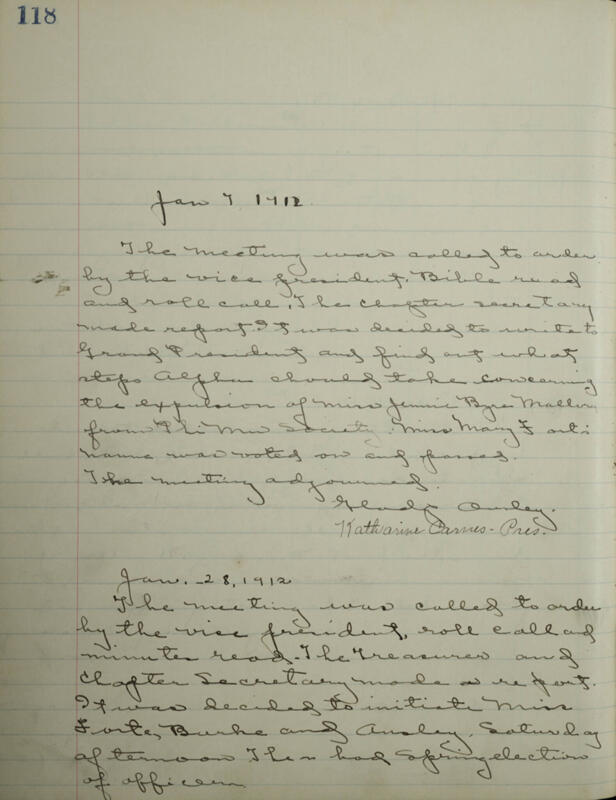 118
Jan 7 1912
The meeting was called to order
by the vice president. Bible read
and roll call. The chapter secretary
made report. It was decided to write to
Grand President and find out what
steps Alpha should take concerning
the expulsion of Miss Jennie Mallory
from Phi Mu Society. Miss Mary Fort's
name was voted on and passed.
The meeting adjourned.
Gladys Ansley.
Katharine Carnes - Pres.
Jan. 28, 1912
The meeting was called to order
by the vice president, roll call and
minutes read. The Treasurer and
Chapter Secretary made a report.
It was decided to initiate Miss
Forte, Burke and Ansley, Saturday
afternoon Then had Spring election
of officers